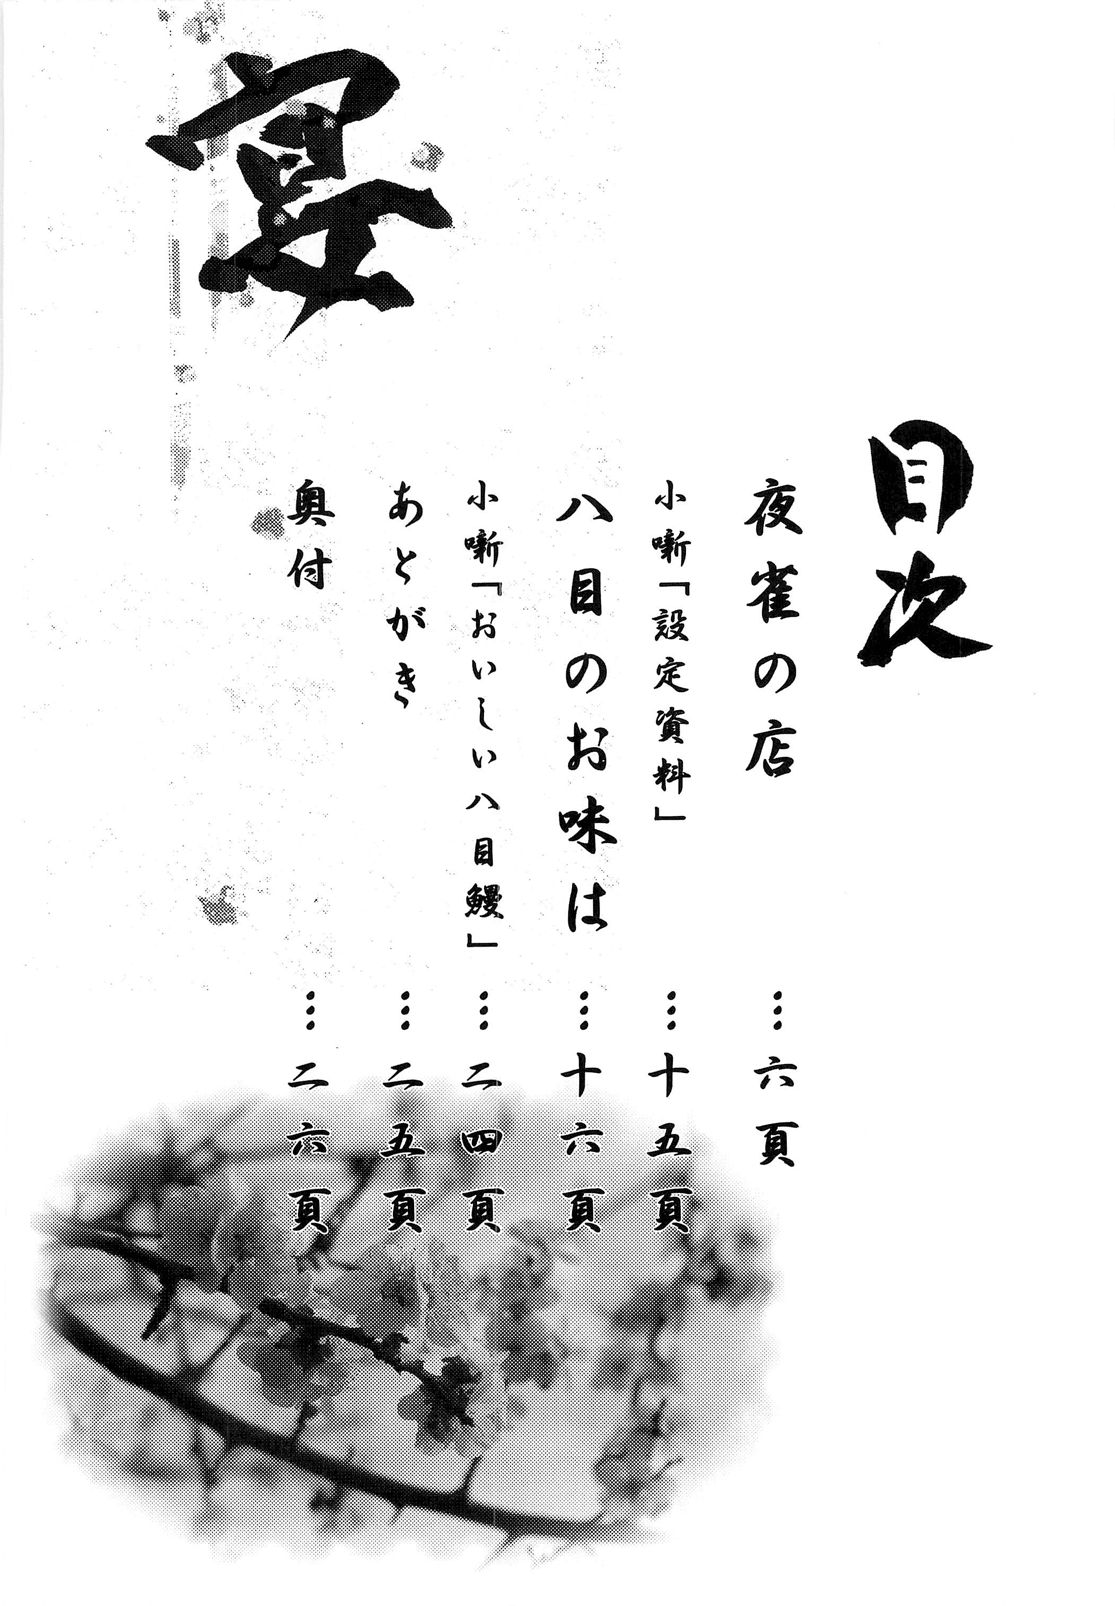 宴
目次
夜雀の店…六頁
小噺「設定資料」…十五頁
八目のお味は…十六頁
小噺「おいしい八目鰻」…二四頁
あとがき…二五頁
奥付…二六頁